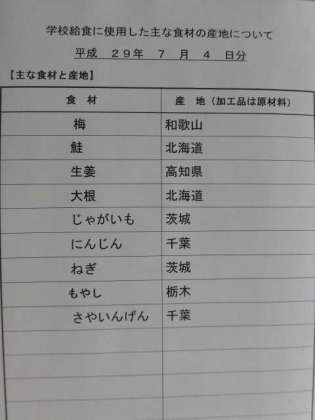 学校給食に使用した主な食材の産地について
平成 29年 7 月 4 日分
【主な食材と産地】
食 材 産 地（加工品は原材料）
梅 和歌山
鮭 北海道
生姜 高知県
大根 北海道
じゃがいも 茨城
にんじん 千葉
ねぎ 茨城
もやし 栃木
さやいんげん 千葉